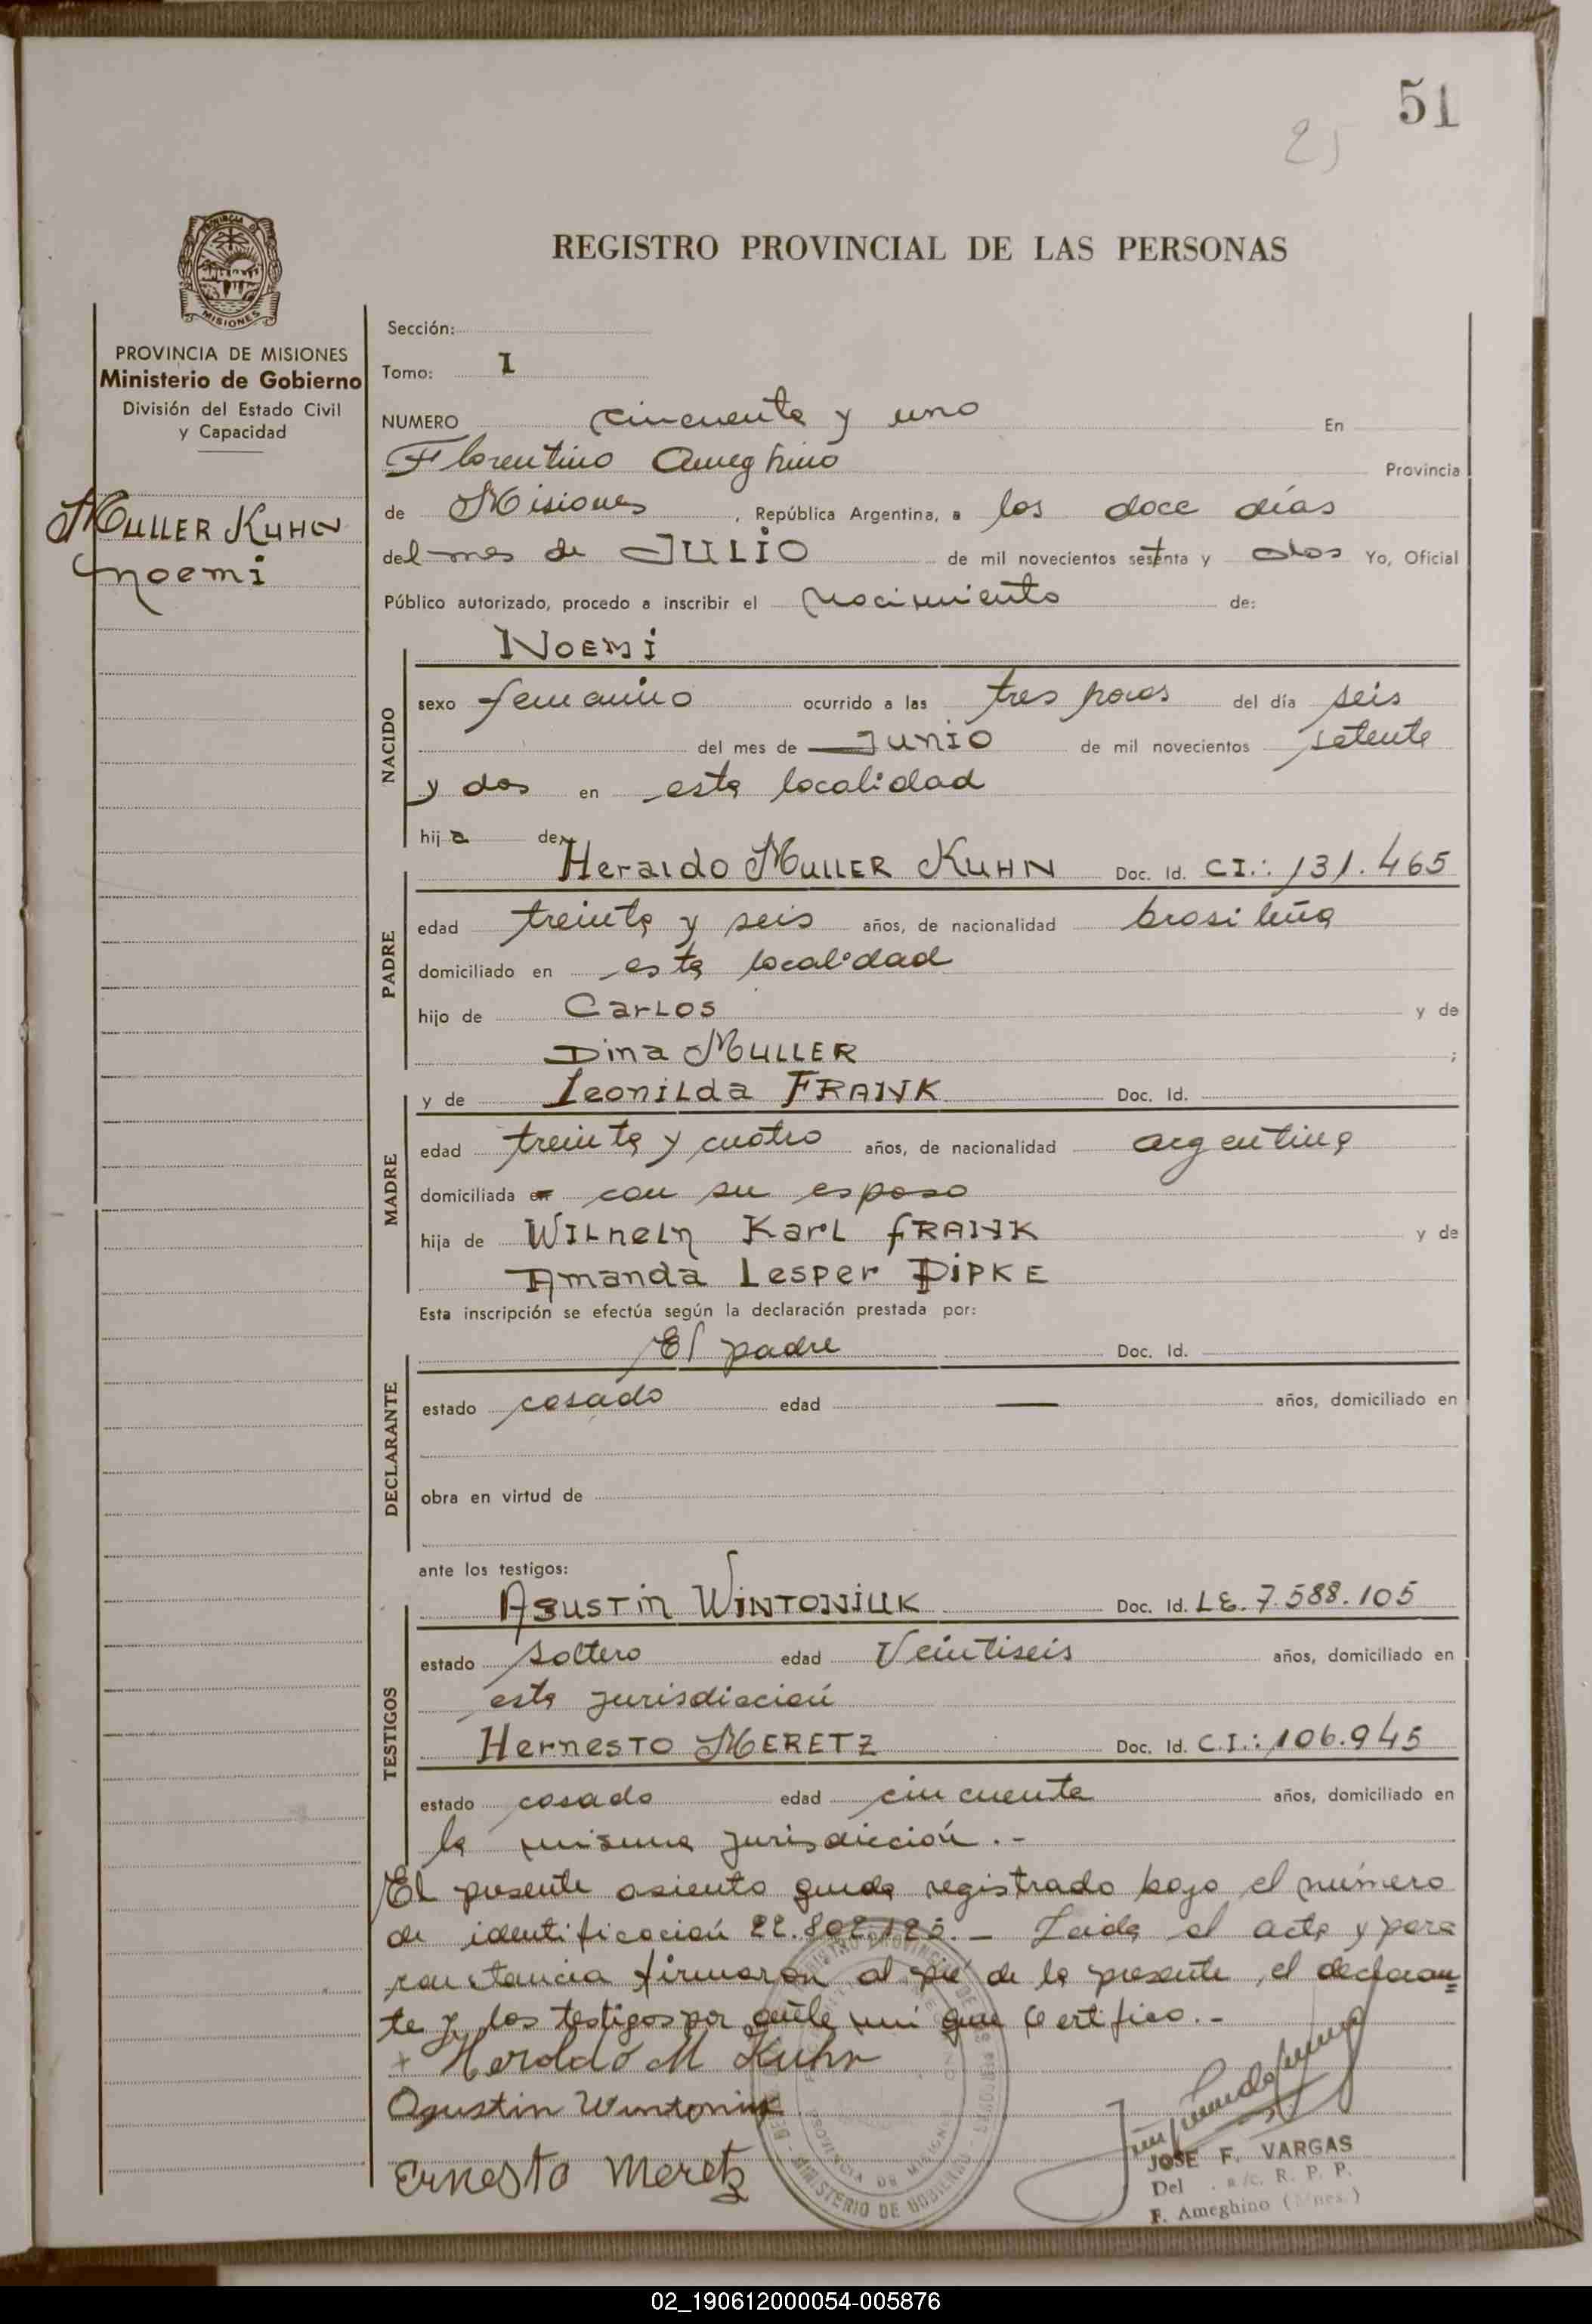 51
25
REGISTRO PROVINCIAL DE LAS PERSONAS
MISIONES
PROVINCIA DE MISIONES
Ministerio de Gobierno
División del Estado Civil
y Capacidad
MULLER KUHN
Noemi
Sección:
Tomo: I
NUMERO cincuenta y uno En
Florentino Ameghino Provincia
de Misiones, República Argentina, a los doce días
del mes de JULIO de mil novecientos setenta y dos Yo, Oficial
Público autorizado, procedo a inscribir el nacimiento de:
NACIDO
NOEMI
sexo femenino ocurrido a las tres horas del día seis
del mes de JUNIO de mil novecientos setenta
y dos en esta localidad
hija de
PADRE
Heraldo MULLER KUHN Doc. Id. CI.: 131.465
edad treinta y seis años, de nacionalidad brasileña
domiciliado en esta localidad
hijo de Carlos y de
Dina MULLER ;
MADRE
y de Leonilda FRANK Doc. Id.
edad treinta y cuatro años, de nacionalidad argentina
domiciliada en con su esposo
hija de Wilheln Karl FRANK y de
Amanda Lesper DIPKE
Esta inscripción se efectúa según la declaración prestada por:
DECLARANTE
El padre Doc. Id.
estado casado edad — años, domiciliado en
obra en virtud de
ante los testigos:
TESTIGOS
Agustin WINTONIUK Doc. Id. LE. 7.588.105
estado soltero edad Veintiseis años, domiciliado en
esta jurisdicción
Hernesto MERETZ Doc. Id. C.I.: 106.945
estado casado edad cincuenta años, domiciliado en
la misma jurisdicción.-
El presente asiento queda registrado bajo el número
de identificación 22.802.- Leida el acta y para
constancia firmaron al pié de la presente, el declaran=
te y los testigos por ante mi que Certifico.-
+ Heroldo M Kuhn
Agustin Wintoniuk
Ernesto Meretz
MINISTERIO DE GOBIERNO
PROVINCIA DE MISIONES
JOSE F. VARGAS
Del . a/c. R. P. P.
F. Ameghino (Mnes.)
02_190612000054-005876